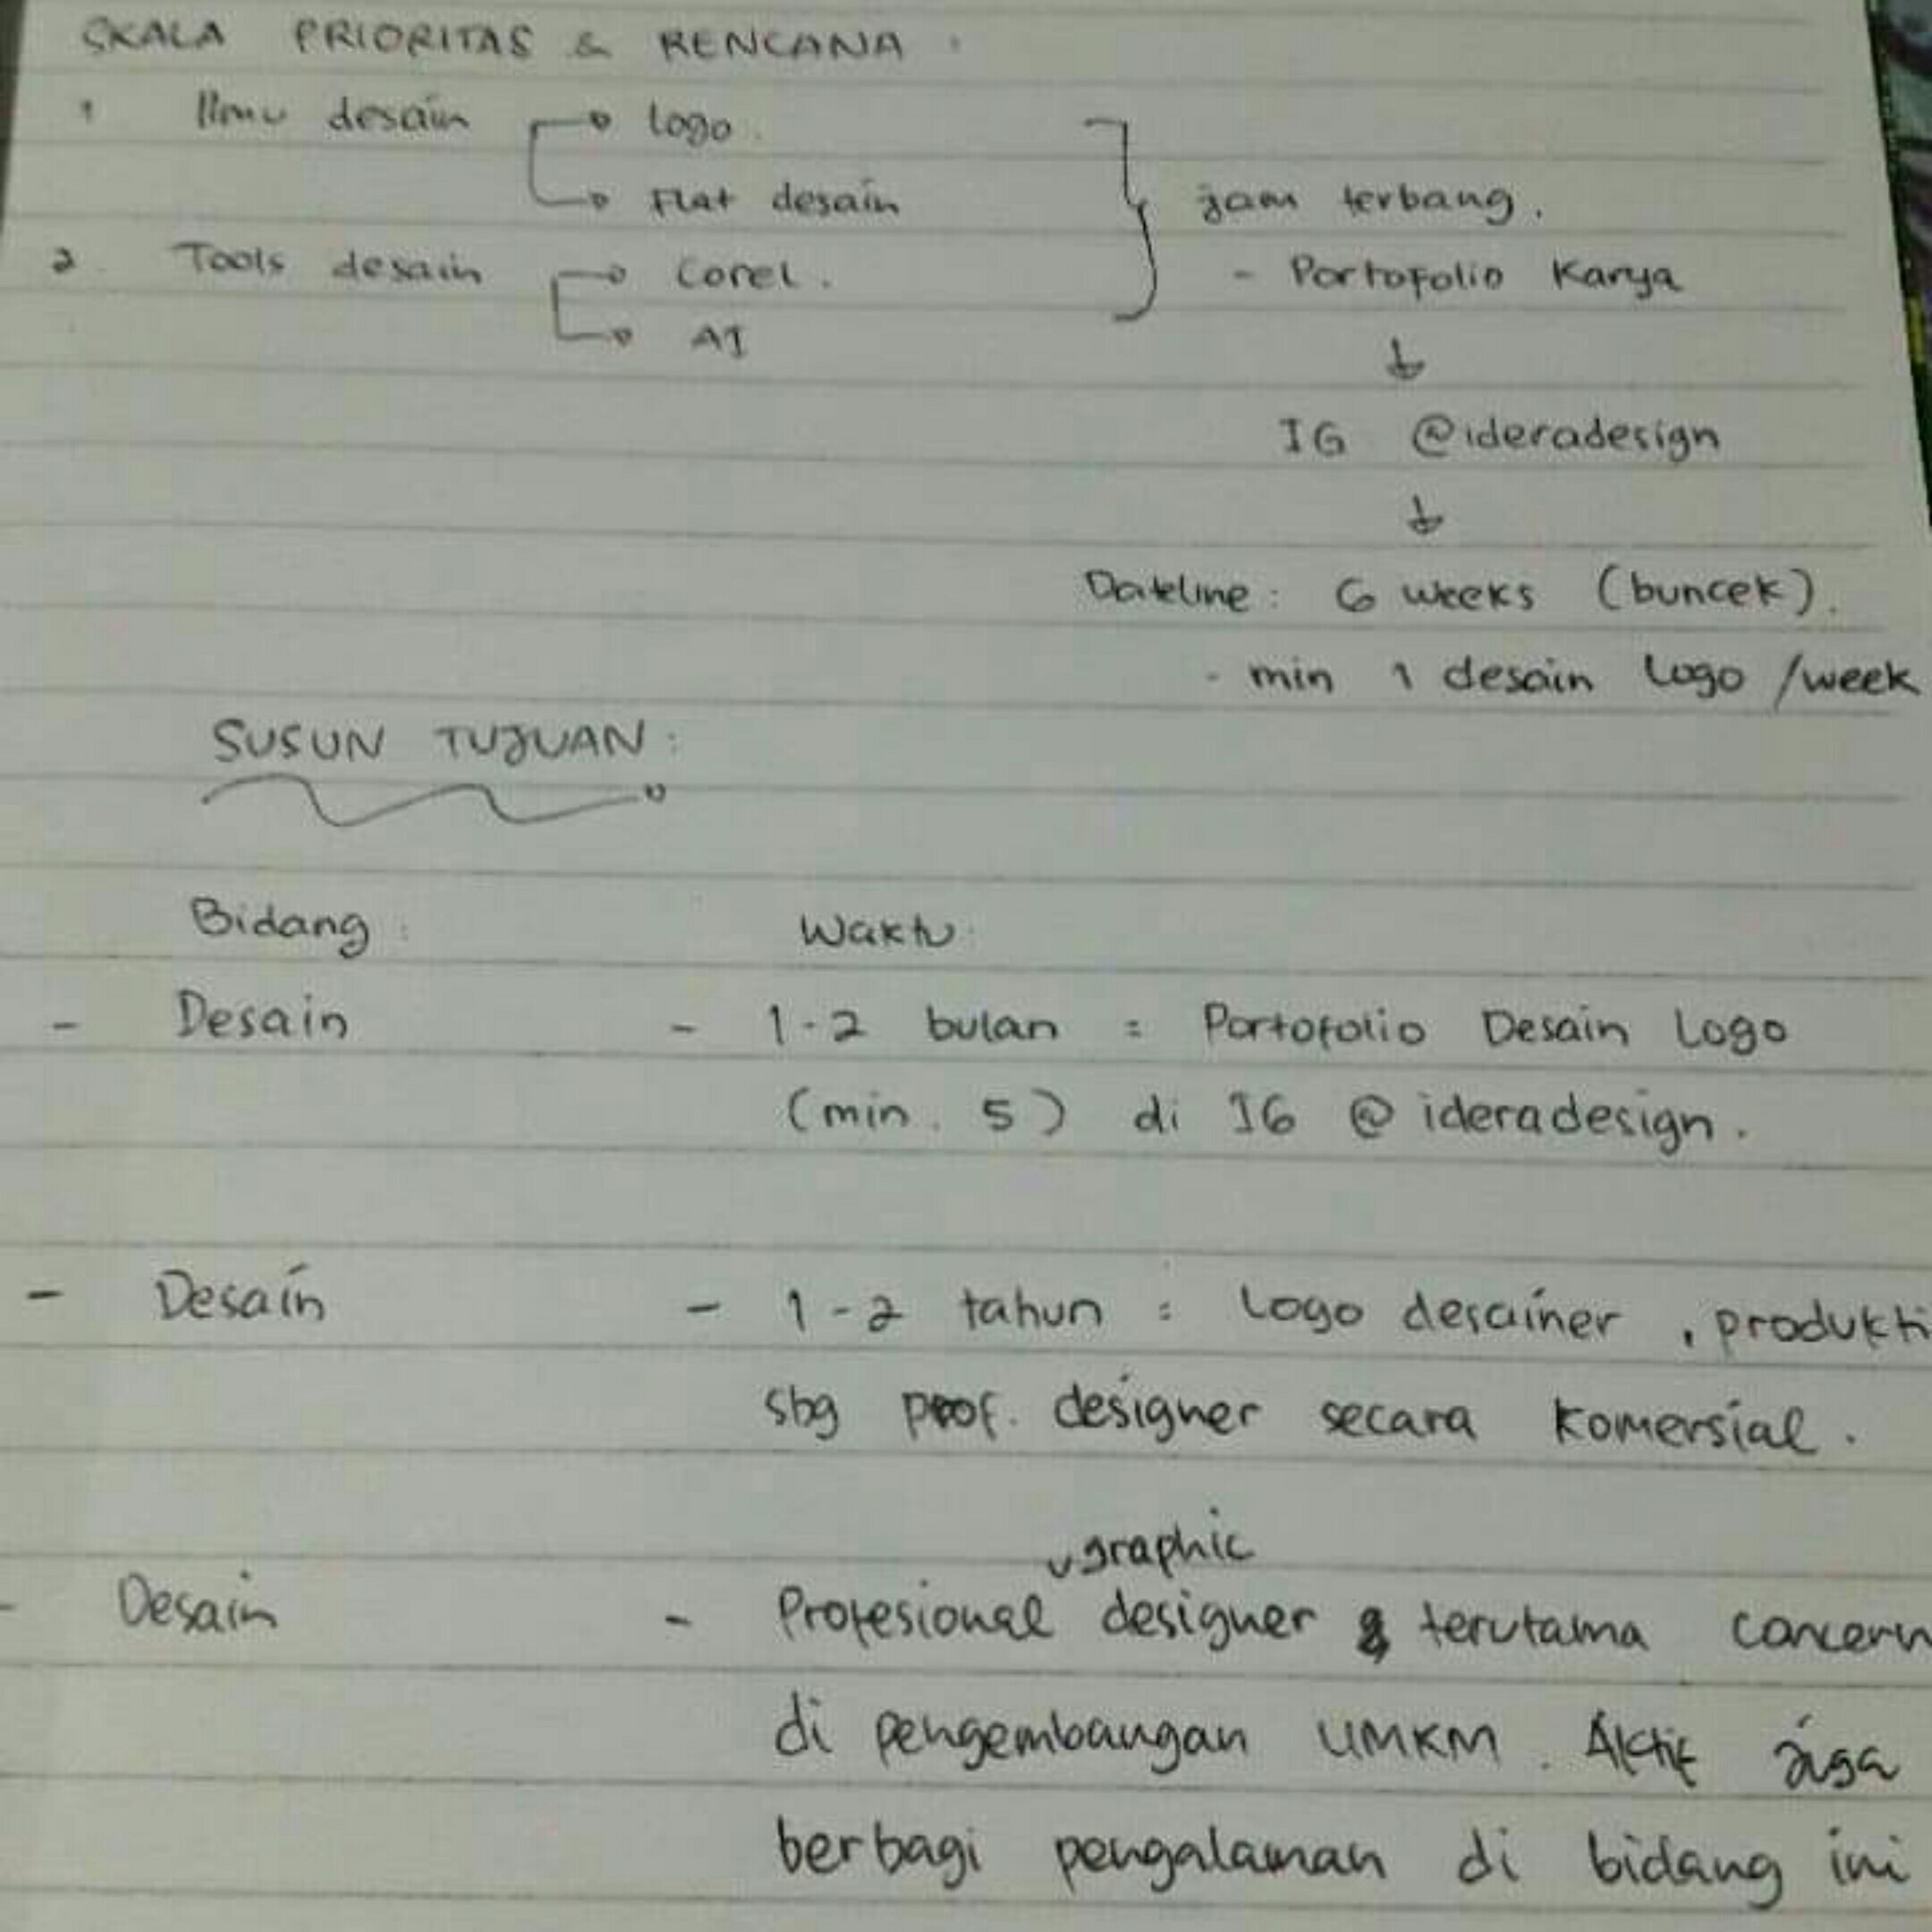 SKALA PRIORITAS & RENCANA :
1 Ilmu desain logo.
Flat desain jam terbang.
2. Tools desain Corel. - Portofolio Karya
AI
IG @ideradesign
Dateline : 6 weeks (buncek).
- min 1 desain logo /week
SUSUN TUJUAN :
Bidang : Waktu :
- Desain - 1-2 bulan : Portofolio Desain Logo
(min. 5) di IG @ideradesign.
- Desain - 1-2 tahun : Logo desainer, produkti
sbg prof. designer secara komersial.
graphic
- Desain - Profesional designer & terutama concern
di pengembangan UMKM. Aktif
berbagi pengalaman di bidang ini